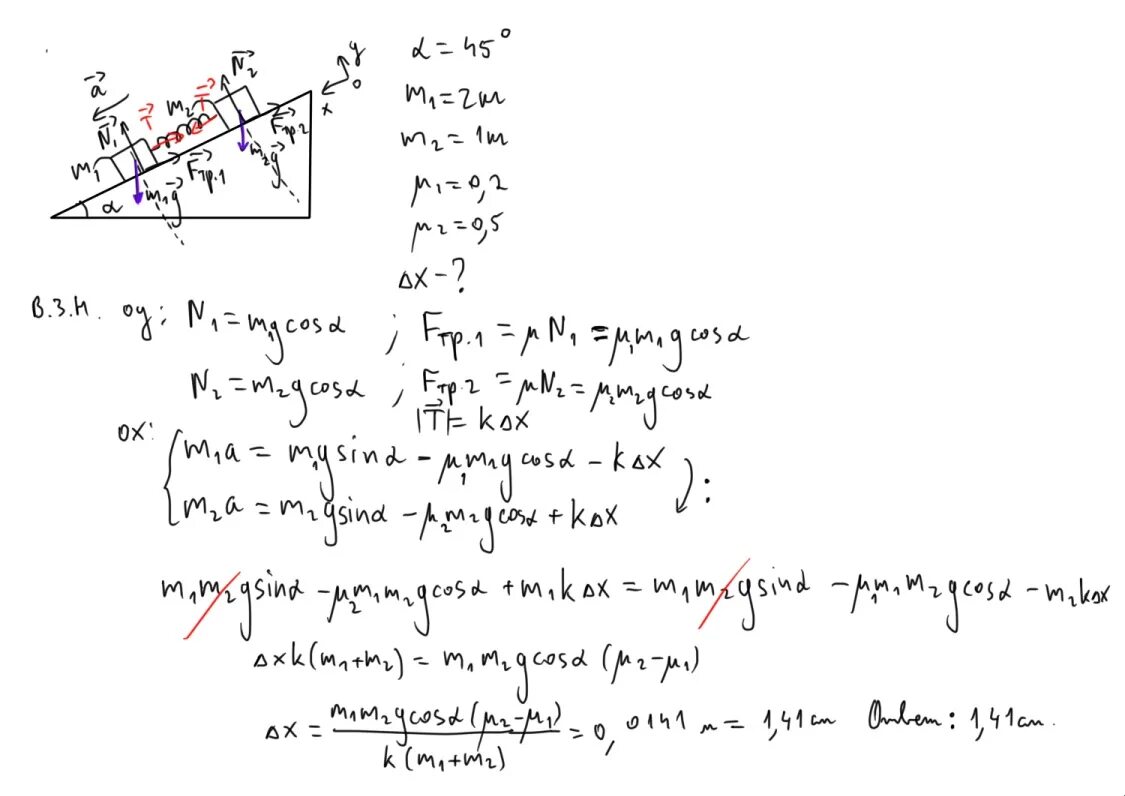 y
N⃗₂
0
x
a⃗
T⃗
m₂
T⃗
N⃗₁
F⃗тр.2
m₁
F⃗тр.1
m₂g⃗
m₁g⃗
α
α = 45°
m₁ = 2м
m₂ = 1м
μ₁ = 0,2
μ₂ = 0,5
Δx - ?
В.З.Н. oy: N₁ = m₁gcosα ; Fтр.1 = μN₁ = μ₁m₁gcosα
N₂ = m₂gcosα ; Fтр.2 = μN₂ = μ₂m₂gcosα
|T⃗| = kΔx
ox: m₁a = m₁gsinα - μ₁m₁gcosα - kΔx
m₂a = m₂gsinα - μ₂m₂gcosα + kΔx :
m₁m₂gsinα - μ₂m₁m₂gcosα + m₁kΔx = m₁m₂gsinα - μ₁m₁m₂gcosα - m₂kΔx
Δxk(m₁+m₂) = m₁m₂gcosα(μ₂-μ₁)
Δx = m₁m₂gcosα(μ₂-μ₁) / k(m₁+m₂) = 0,0141 м = 1,41 см Ответ: 1,41 см.